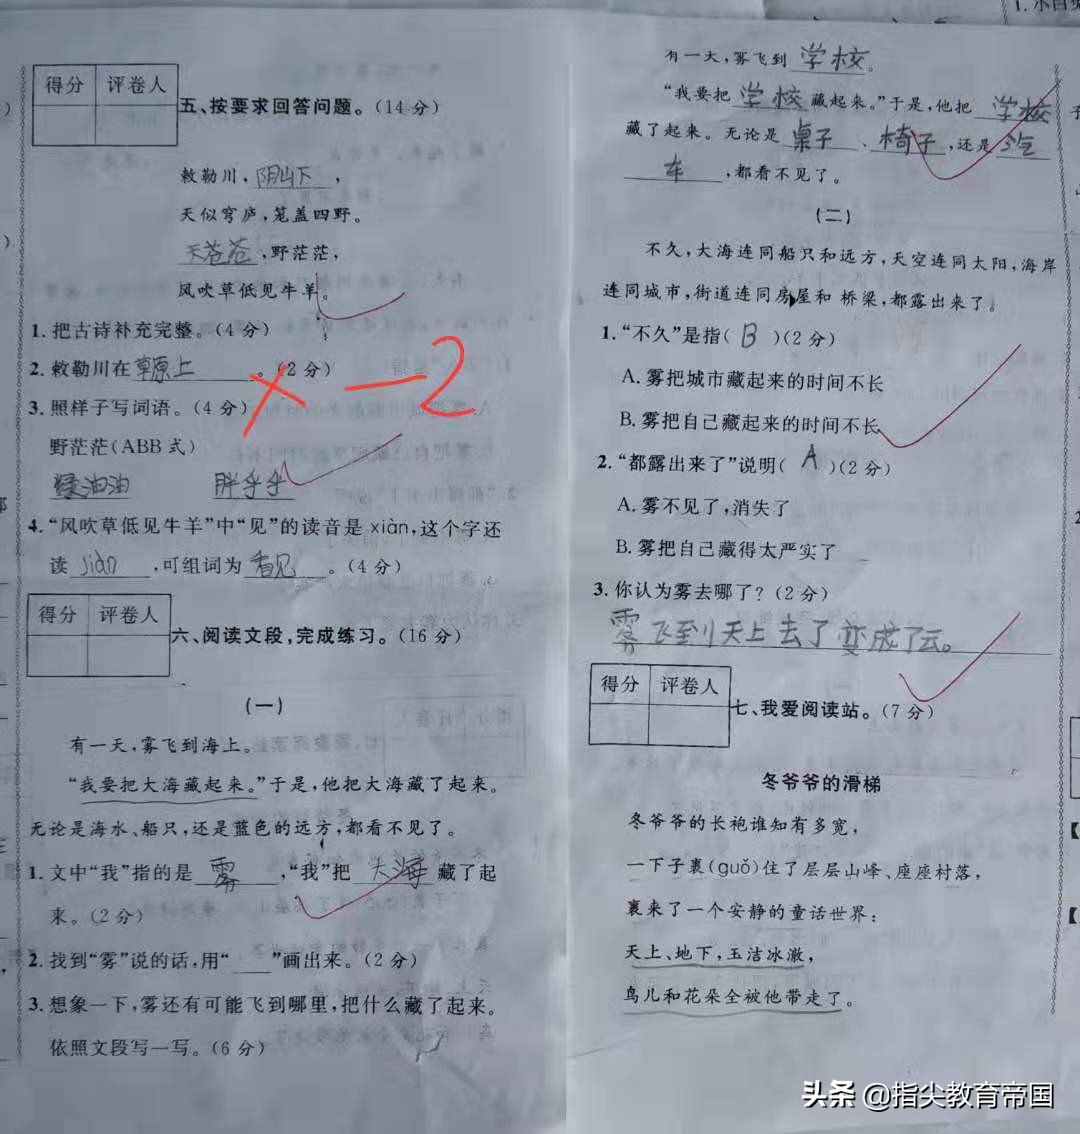 得分 评卷人
五、按要求回答问题。(14分)
敕勒川，阴山下，
天似穹庐，笼盖四野。
天苍苍，野茫茫，
风吹草低见牛羊。
1.把古诗补充完整。(4分)
2.敕勒川在草原上。(2分)
× -2
3.照样子写词语。(4分)
野茫茫(ABB式)
绿油油 胖乎乎
4.“风吹草低见牛羊”中“见”的读音是xiàn，这个字还
读jiàn，可组词为看见。(4分)
得分 评卷人
六、阅读文段，完成练习。(16分)
(一)
有一天，雾飞到海上。
“我要把大海藏起来。”于是，他把大海藏了起来。
无论是海水、船只，还是蓝色的远方，都看不见了。
1.文中“我”指的是雾，“我”把大海藏了起
来。(2分)
2.找到“雾”说的话，用“__”画出来。(2分)
3.想象一下，雾还有可能飞到哪里，把什么藏了起来。
依照文段写一写。(6分)
1.
有一天，雾飞到学校。
“我要把学校藏起来。”于是，他把学校
藏了起来。无论是桌子、椅子，还是汽
车，都看不见了。
(二)
不久，大海连同船只和远方，天空连同太阳，海岸
连同城市，街道连同房屋和桥梁，都露出来了。
1.“不久”是指(B)(2分)
A.雾把城市藏起来的时间不长
B.雾把自己藏起来的时间不长
2.“都露出来了”说明(A)(2分)
A.雾不见了，消失了
B.雾把自己藏得太严实了
3.你认为雾去哪了？(2分)
雾飞到天上去了变成了云。
得分 评卷人
七、我爱阅读站。(7分)
冬爷爷的滑梯
冬爷爷的长袍谁知有多宽，
一下子裹(guǒ)住了层层山峰、座座村落，
裹来了一个安静的童话世界：
天上、地下，玉洁冰澈，
鸟儿和花朵全被他带走了。
头条 @指尖教育帝国